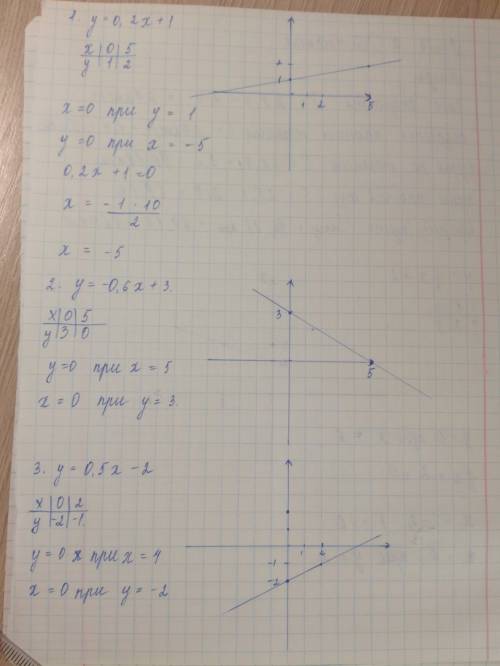 1. y = 0,2x+1
x | 0 | 5
y | 1 | 2
x=0 при y = 1
y=0 при x = -5
0,2x +1=0
x = -1 · 10
2
x = -5
2
1
1 2 5
2. y = -0,6x+3.
x | 0 | 5
y | 3 | 0
y=0 при x = 5
x = 0 при y = 3.
3
5
3. y = 0,5x -2
x | 0 | 2
y | -2 | -1
y=0 x при x = 4
x = 0 при y = -2
1
-1
-2